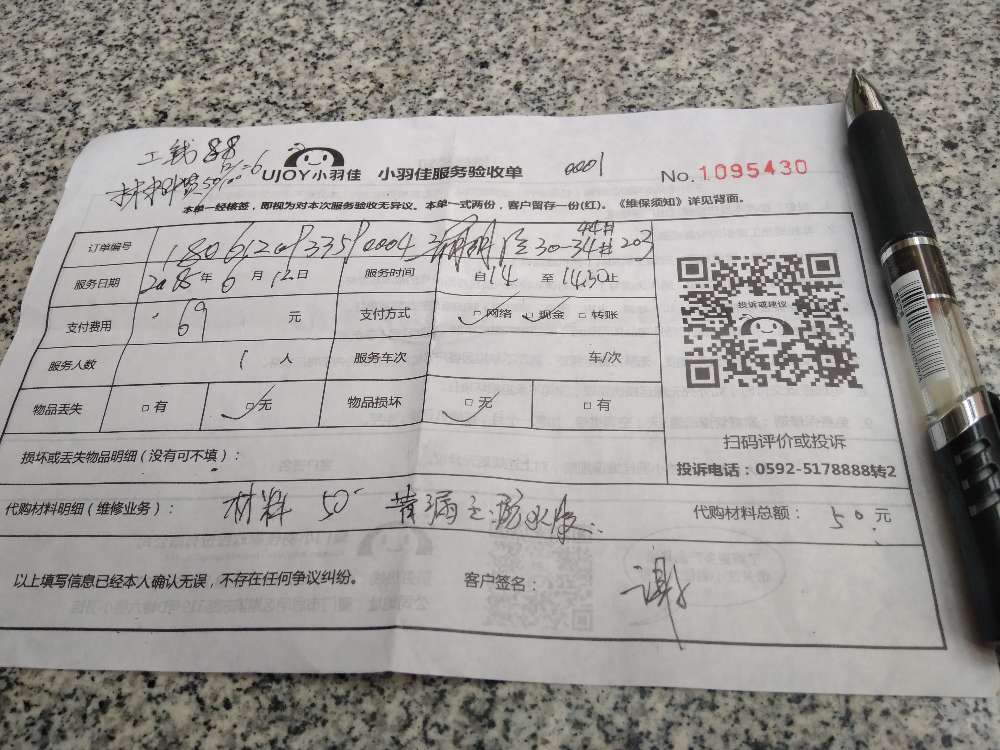 工钱88
UJOY小羽佳 小羽佳服务验收单 0001 No.1095430
本单一经核签，即视为对本次服务验收无异议。本单一式两份，客户留存一份(红)。《维保须知》详见背面。
订单编号 30-34# 203
44#
服务日期 2018年6月12日 服务时间 自14至14.30止
支付费用 69 元 支付方式 □网络 □现金 □转账
服务人数 1 人 服务车次 车/次
物品丢失 □有 □无 物品损坏 □无 □有
投诉或建议
扫码评价或投诉
投诉电话：0592-5178888转2
损坏或丢失物品明细（没有可不填）：
代购材料明细（维修业务）： 材料 50 代购材料总额： 50元
以上填写信息已经本人确认无误，不存在任何争议纠纷。 客户签名： 谢